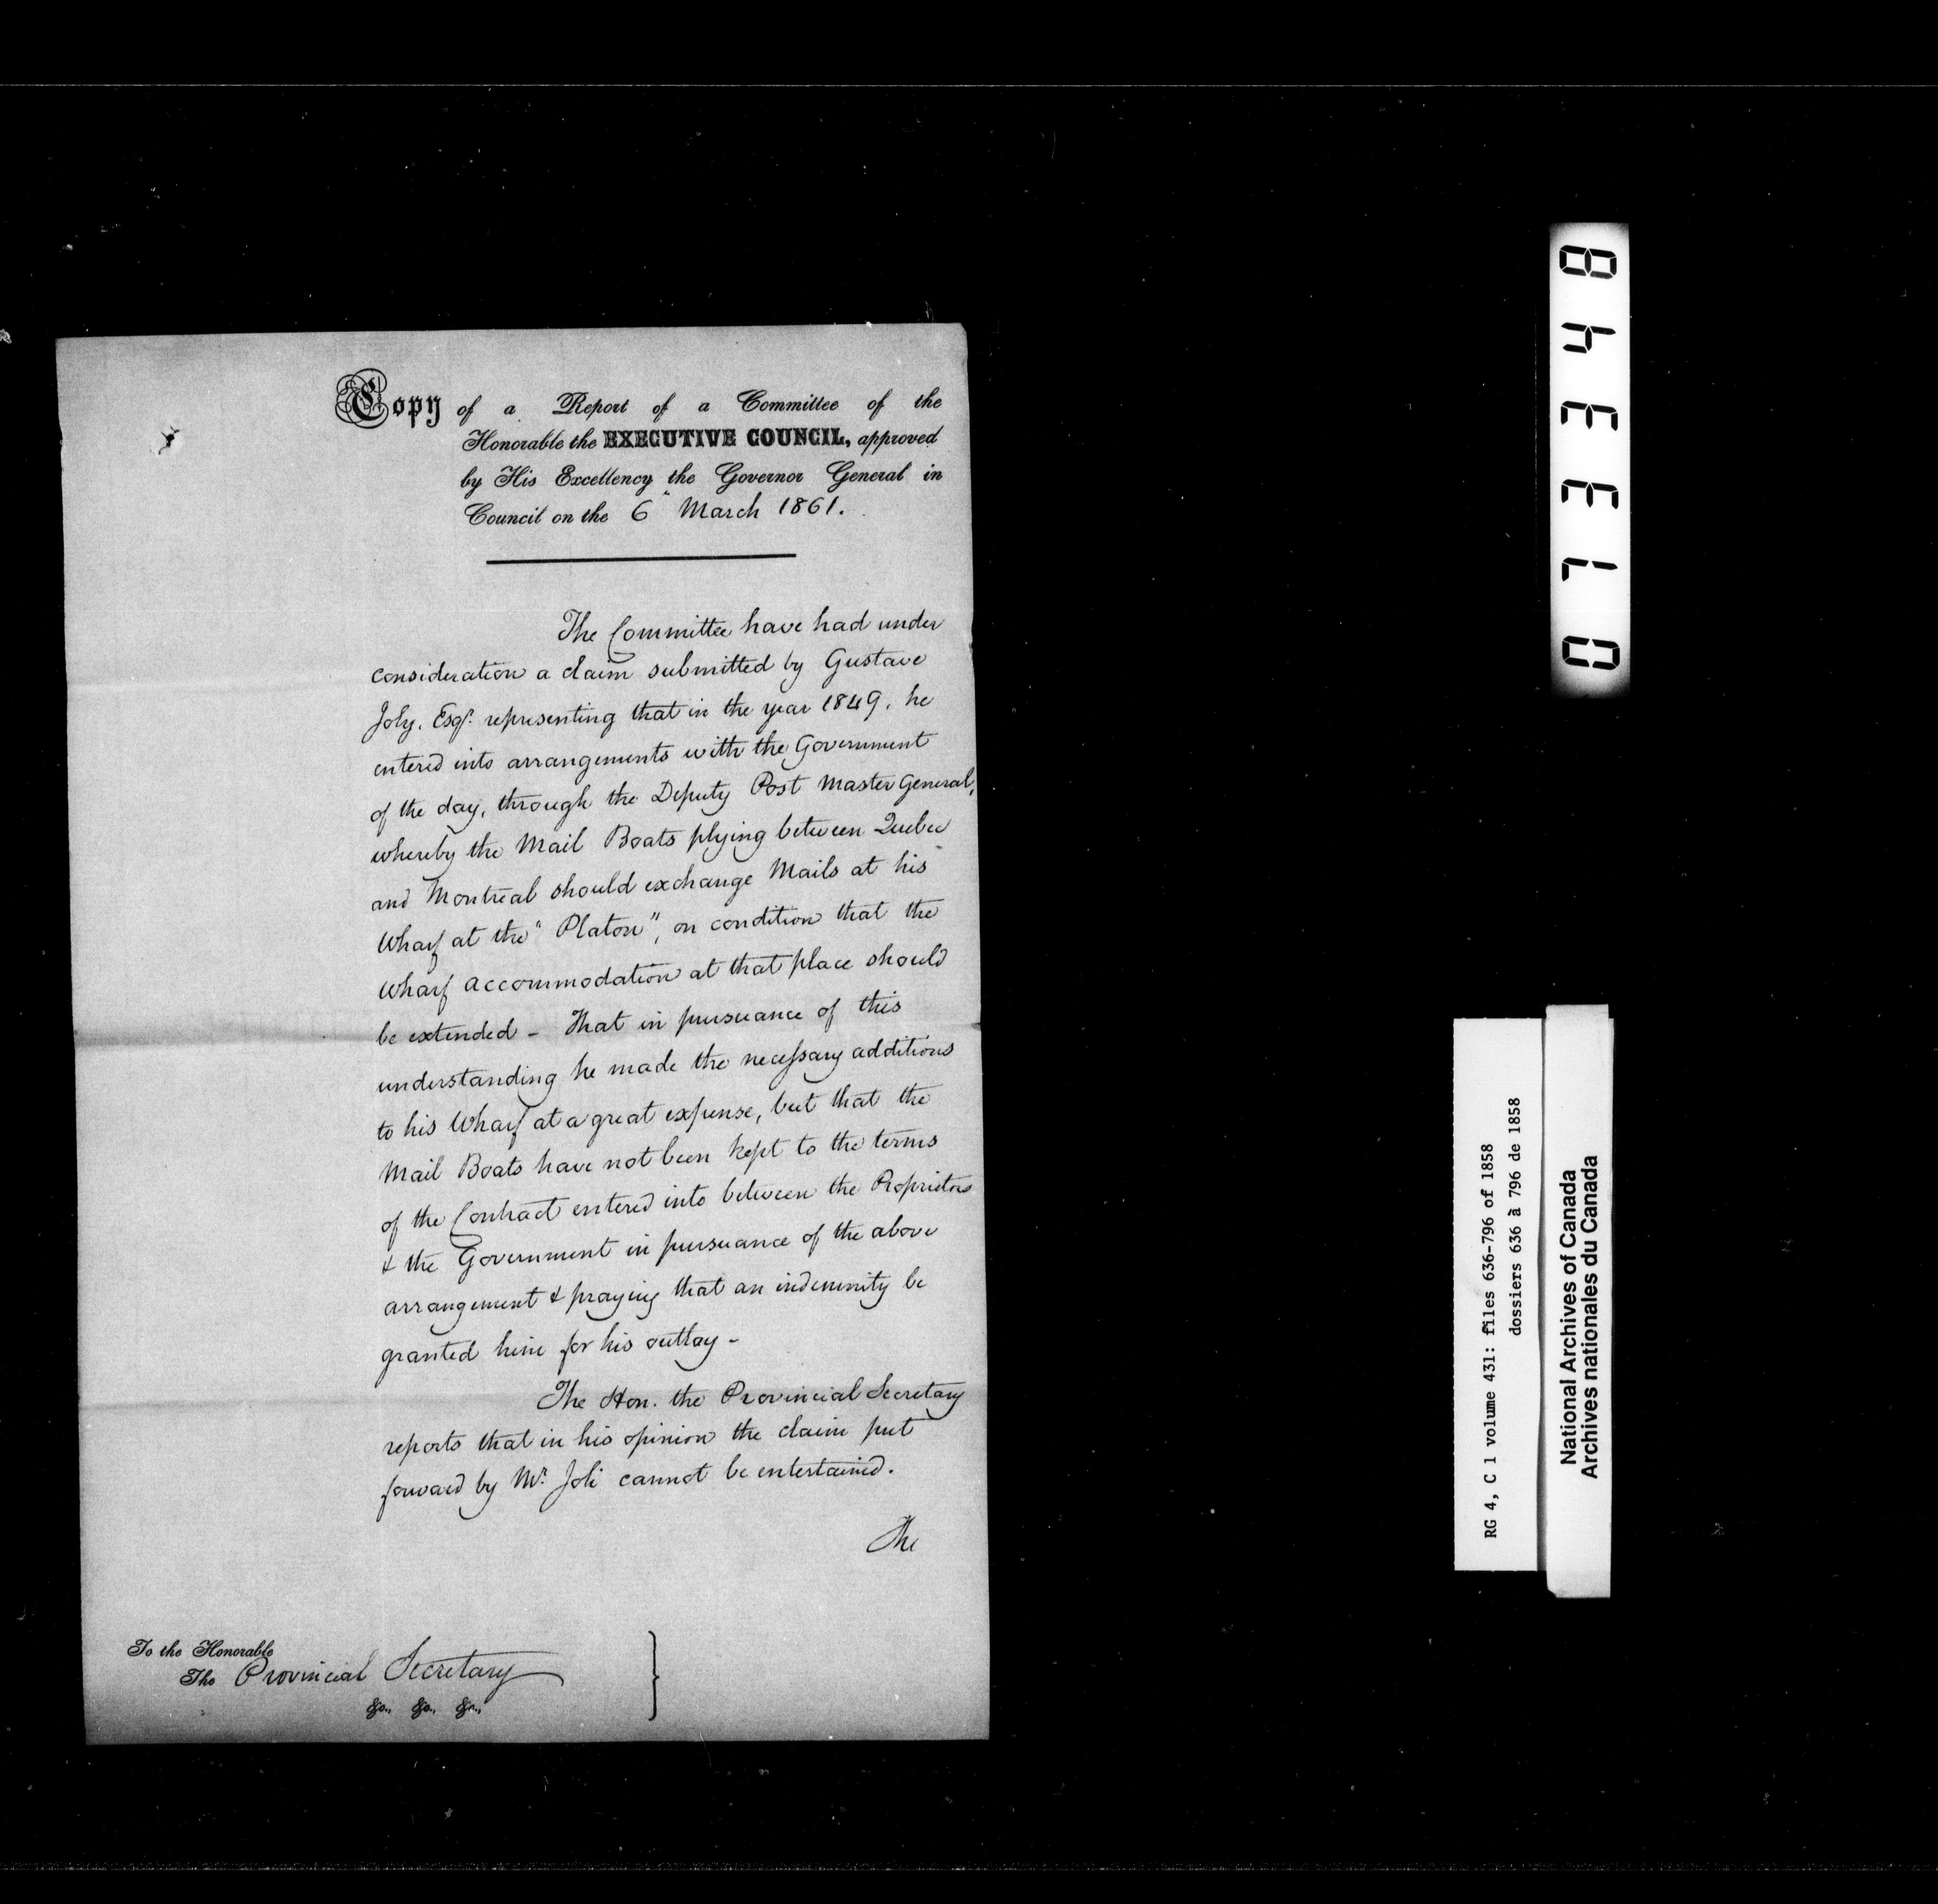 Copy of a Report of a Committee of the
Honorable the EXECUTIVE COUNCIL, approved
by His Excellency the Governor General in
Council on the 6" March 1861.
The Committee have had under
consideration a claim submitted by Gustave
Joly, Esqr. representing that in the year 1849, he
entered into arrangements with the Government
of the day, through the Deputy Post Master General,
whereby the Mail Boats plying between Quebec
and Montreal should exchange Mails at his
Wharf at the "Platon", on condition that the
Wharf accommodation at that place should
be extended - That in pursuance of this
understanding he made the necessary additions
to his Wharf at a great expense, but that the
Mail Boats have not been kept to the terms
of the Contract entered into between the Proprietors
& the Government in pursuance of the above
arrangement & praying that an indemnity be
granted him for his outlay -
The Hon. the Provincial Secretary
reports that in his opinion the claim put
forward by Mr. Joli cannot be entertained.
The
To the Honorable
The Provincial Secretary
&c., &c., &c.,
073348
RG 4, C 1 volume 431: files 636-796 of 1858
dossiers 636 à 796 de 1858
National Archives of Canada
Archives nationales du Canada